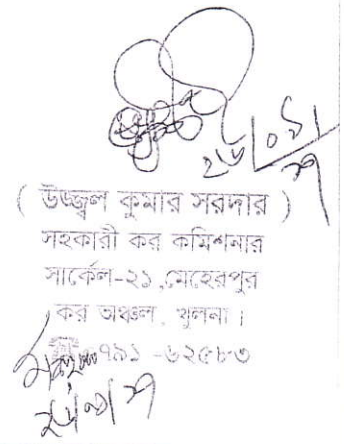 ২৬/০৯/
( উজ্জ্বল কুমার সরদার )
সহকারী কর কমিশনার
সার্কেল-২১,মেহেরপুর
কর অঞ্চল, খুলনা।
৭৯১ -৬২৫৮৩